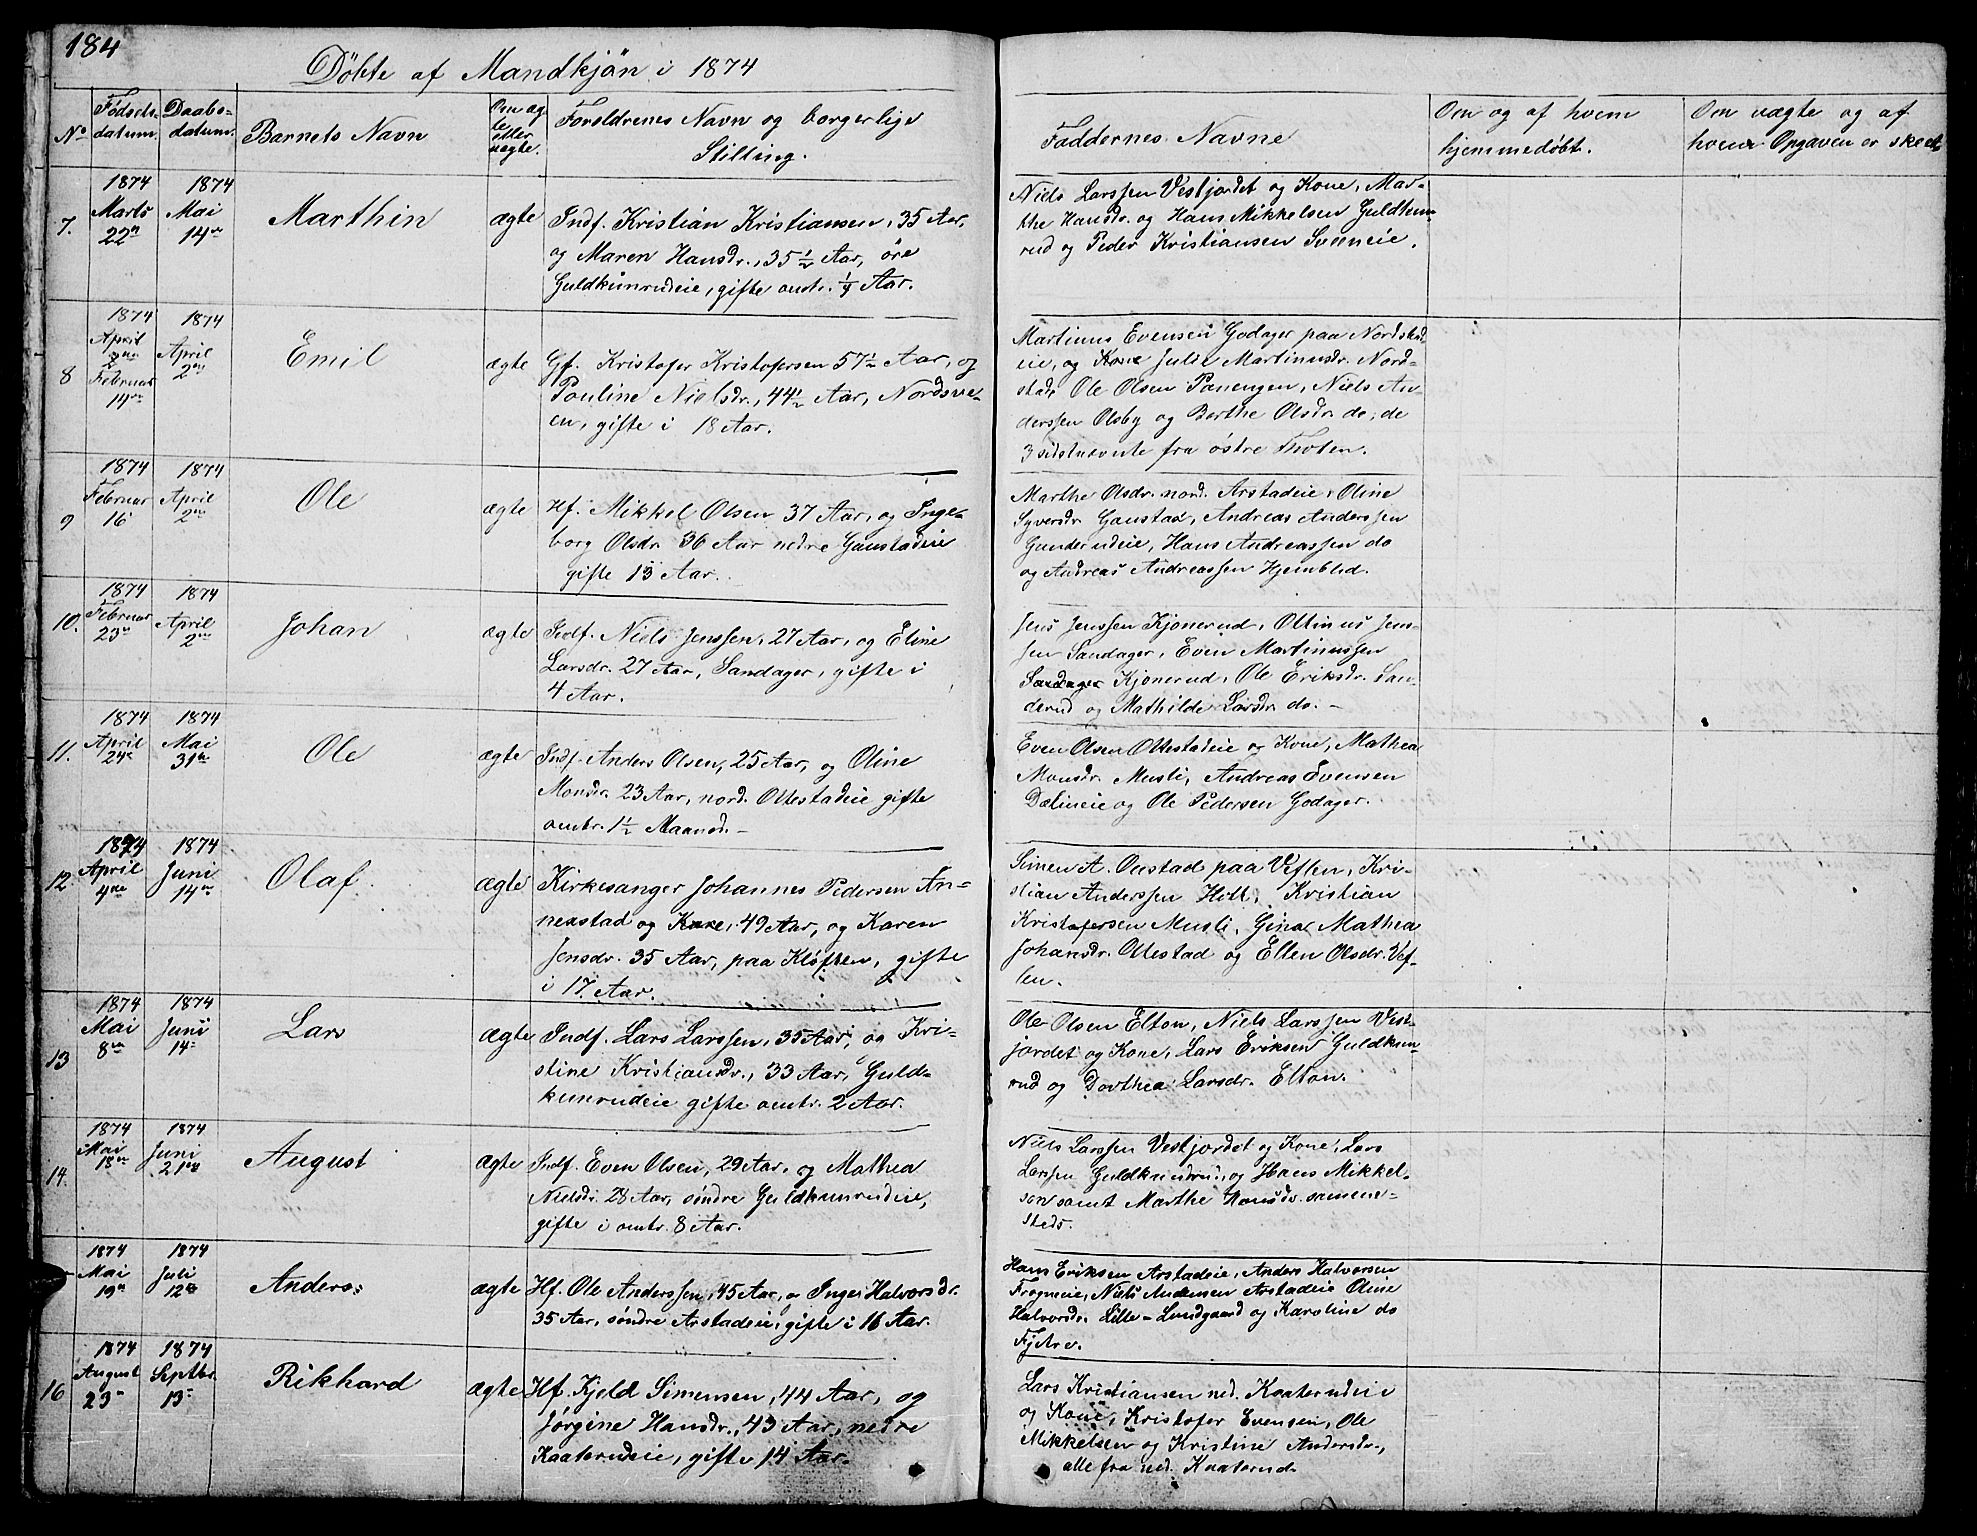 184
Döbte af Mandkjön i 1874
No
Fødsels-
datum.
Daabs-
datum.
Barnets Navn
Om æg
te
eller
uægte.
Forældrenes Navn og borgerlige
Stilling.
Faddernes Navne
Om og af hvem
hjemmedøbt.
Om uægte og af
hvem Opgaven er skeet
7.
1874
Marts
22n
1874
Mai
14n
Marthin
ægte
Indf. Kristian Kristiansen, 35 Aar,
og Maren Hansdr., 35 1/2 Aar, öre
Guldkunrudeie, gifte omtr. 1/4 Aar.
Niels Larssen Vestjordet og Kone, Mar-
the Hansdr. og Hans Mikkelsen Guldkun-
rud og Peder Kristiansen Sveeneie.
8
1874
April
Februar
14n
1874
April
2en
Emil
ægte
Gf. Kristofer Kristofersen 57 1/2 Aar, og
Pouline Nielsdr., 44 1/2 Aar, Nordsve-
en, gifte i 18 Aar.
Martinus Evensen Godager paa Nordstad
eie, og Kone Julie Martinusdr. Nord-
stad Ole Olsen Panengen, Niels An-
derssen Olsby og Berthe Olsdr. do, de
3 sidstnævnte fra østre Thoten.
9
1874
Februar
16
1874
April
2en
Ole
ægte
Hf. Mikkel Olsen 37 Aar, og Inge-
borg Olsdr. 36 Aar nedre Gaustadeie
gifte 13 Aar.
Marthe Olsdr. nord. Arstadeie, Oline
Syversdr. Gaustad, Andreas Anderssen
Gunderudeie, Hans Andreassen do
og Andreas Andreassen Hjemblid.
10.
1874
Februar
23n
1874
April
2en
Johan
ægte
Indf. Niels Jenssen, 27 Aar, og Eline
Larsdr. 27 Aar, Sandager, gifte i
4 Aar.
Jens Jenssen Kjönerud, Ottinus Jens-
sen Sandager, Even Martinussen
Sandager Kjönerud, Ole Eriksdr. San-
derud og Mathilde Larsdr. do. -
11.
1874
April
24e
1874
Mai
31te
Ole
ægte
Indf. Anders Olsen, 25 Aar, og Oline
Monsdr. 23 Aar, nord. Ottestadeie gifte
omtr. 1 1/2 Maaned. -
Even Olsen Ottestadeie og Kone, Mathea
Monsdr. Musli, Andreas Evensen
Dælineie og Ole Pedersen Godager.
12.
1874
April
4de
1874
Juni
14n
Olaf.
ægte
Kirkesanger Johannes Pedersen An-
nexstad og Kone, 49 Aar, og Karen
Jensdr. 35 Aar, paa Kløften, gifte
i 17. Aar.
Simen A. Onstad paa Veflen, Kri-
stian Anderssen Hitt, Kristian
Kristofersen Musli, Gina Mathea
Johansdr. Ottestad og Ellen Olsdr. Vef-
len.
13
1874
Mai
8de
1874
Juni
14-
Lars
ægte
Indf. Lars Larssen, 35 Aar, og Kri-
stine Kristiansdr., 33 Aar, Guld-
kunrudeie gifte omtr. 2 Aar.
Ole Olsen Elton, Niels Larssen Vest-
jordet og Kone, Lars Eriksen Guldkun-
rud og Dorthea Larsdr. Elton.
14.
1874
Mai
18de
1874
Juni
21de
August
ægte
Indf. Even Olsen, 29 Aar, og Mathea
Nielsdr. 28 Aar, søndre Guldkunrudeie,
gifte i omtr. 8 Aar.
Niels Larssen Vestjordet og Kone, Lars
Larssen Guldkunrud, og Hans Mikkel-
sen samt Marthe Hansdr. samme-
steds.
1874
Mai
19n
1874
Juli
12e
Anders:
ægte
Hf. Ole Anderssen, 45 Aar, o Inger Halvorsdr.
35 Aar, søndre Arstadeie, gifte i 16 Aar.
Hans Eriksen Arstadeie, Anders Halvorsen
Frogneie, Niels Andersen Arstadeie Oline
Halvorsdr. Lille-Lundgaard og Karoline do
Fjetre.
16
1874
August
23-
1874
Septbr.
13-
Rikhard
ægte
Hf. Kjeld Simensen, 44 Aar, og
Jørgine Hansdr., 43 Aar, nedre
Kaaterudeie, gifte 14 Aar.
Lars Kristiansen ned. Kaaterudeie
og Kone, Kristofer Evensen, Ole
Mikkelsen og Kristine Andersdr.,
alle fra ned. Kaaterud.